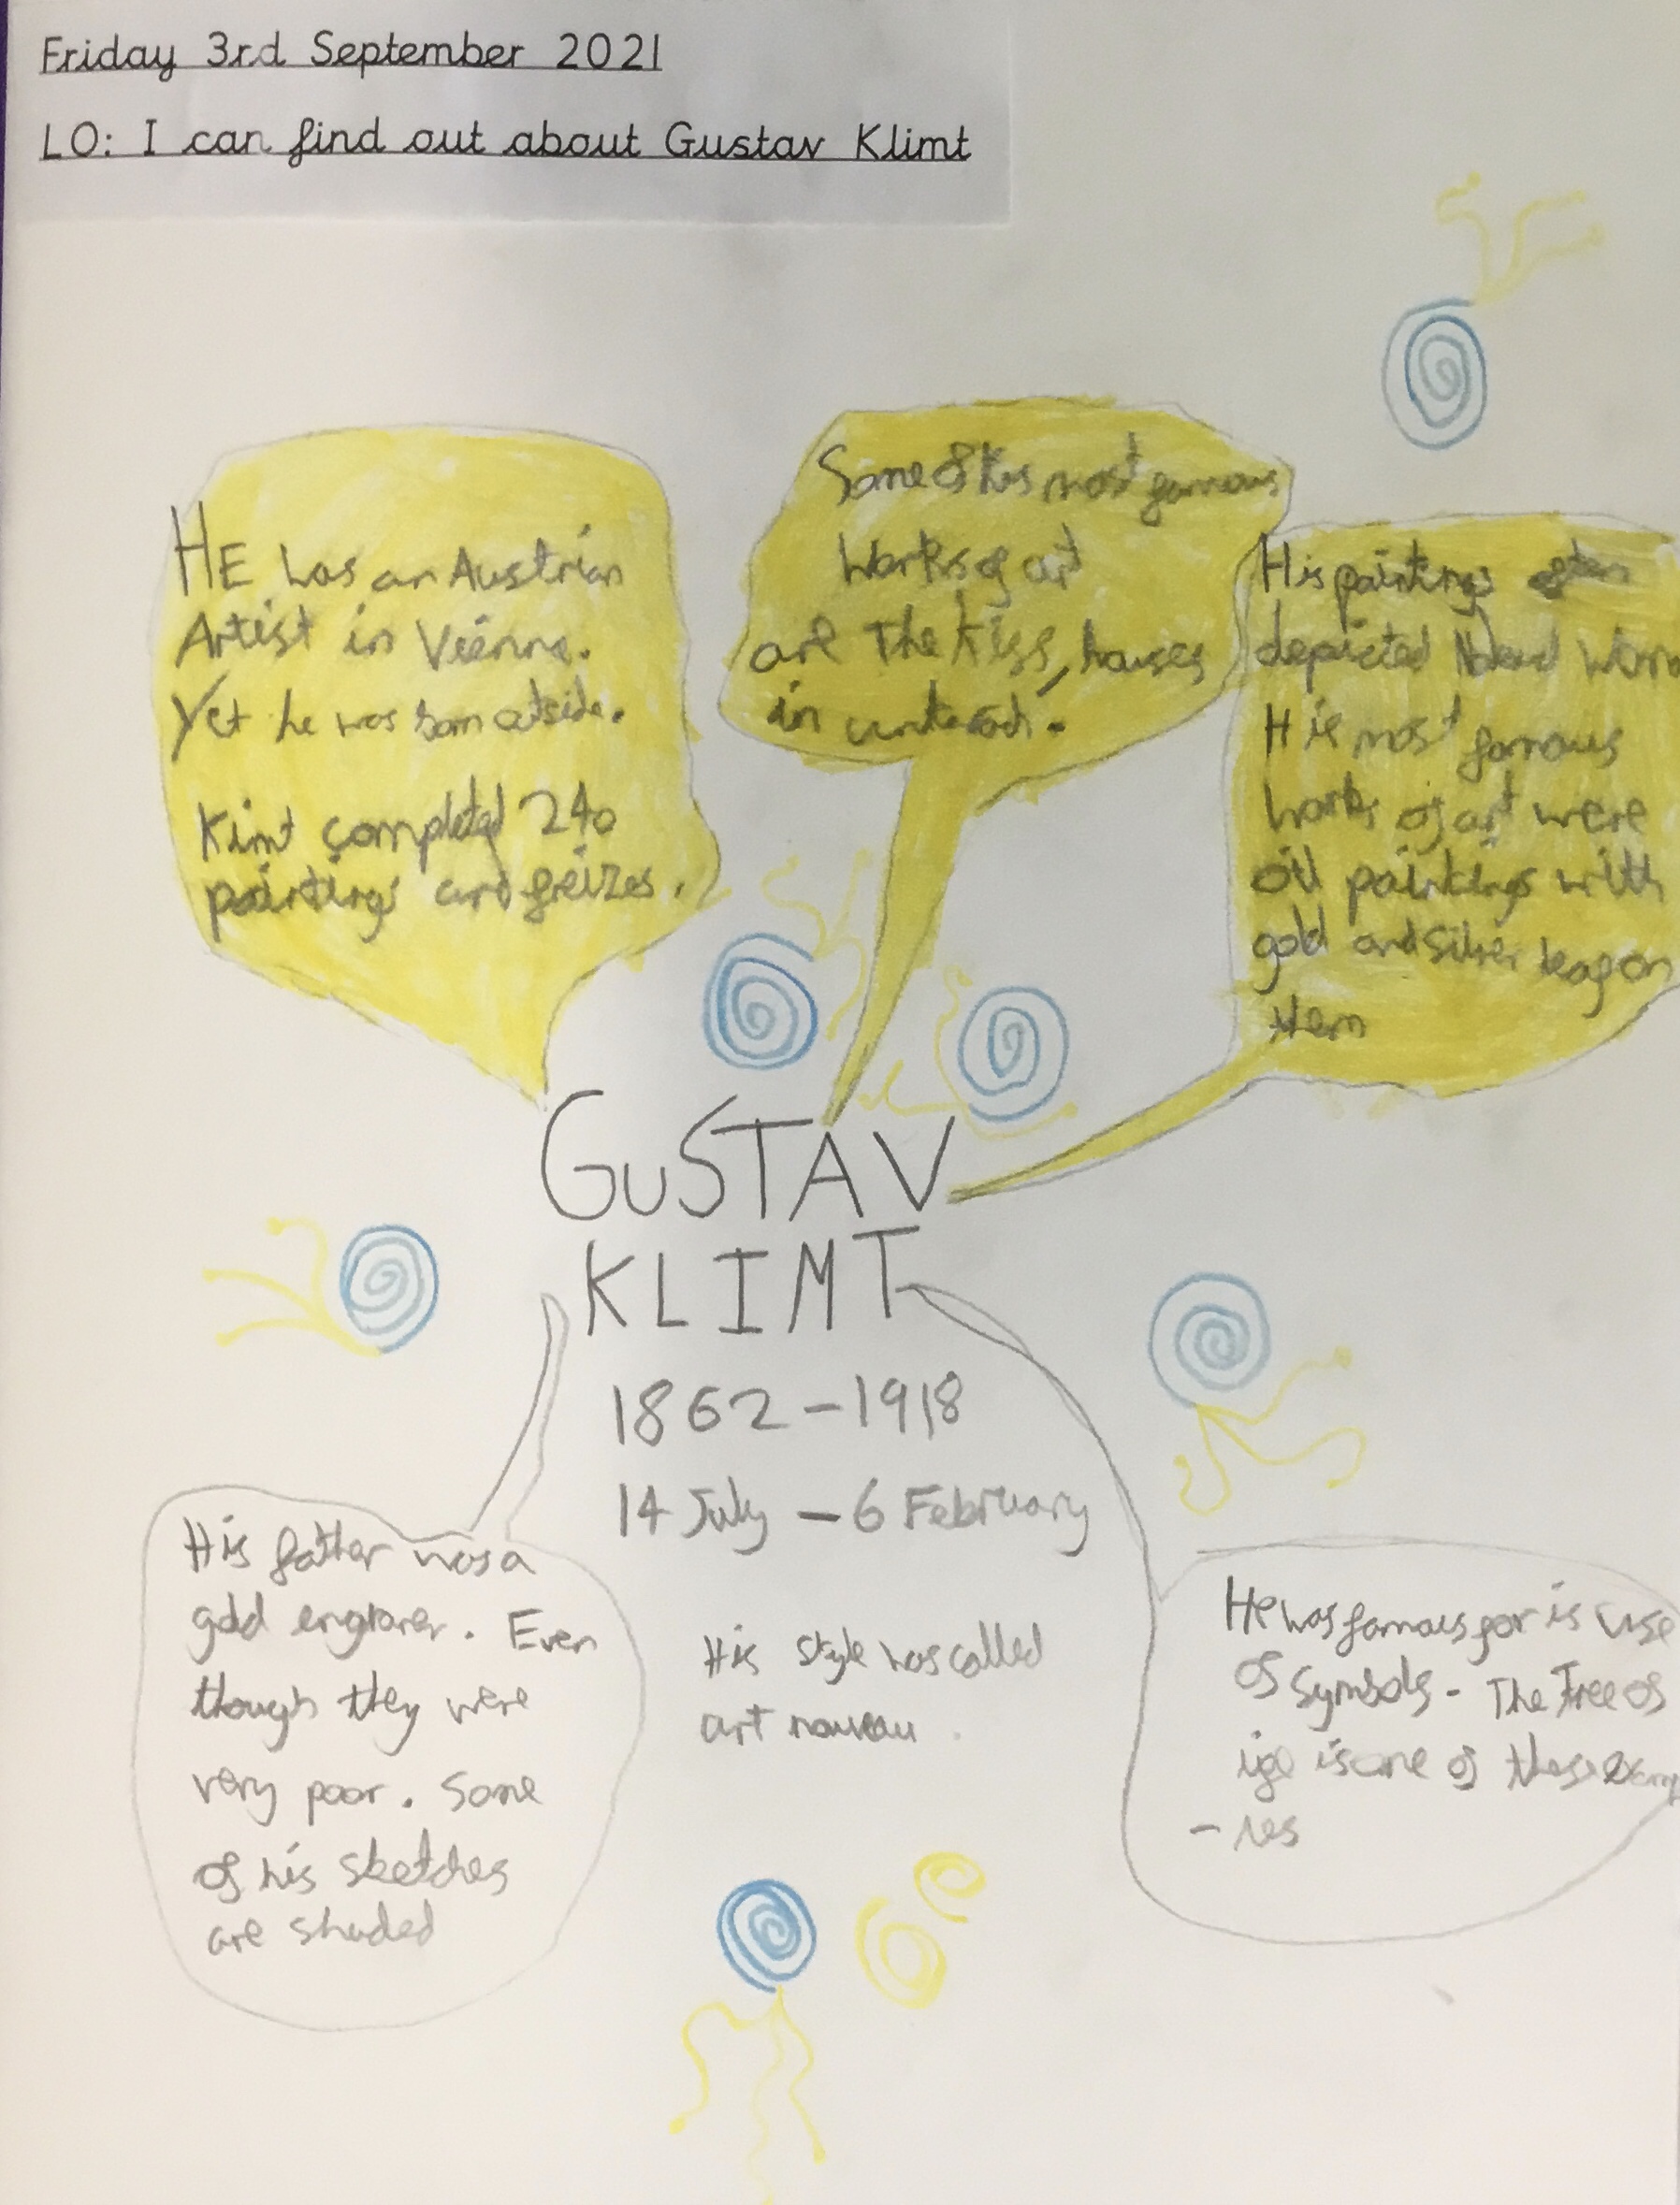 Friday 3rd September 2021
LO: I can find out about Gustav Klimt
HE was an Austrian
Artist in Vienna.
Yet he was born outside.
Kimt completed 240
paintings and freizes.
Some of his most famous
works of art
are The Kiss, houses
in unterach.
His paintings often
depicted
His most famous
works of art were
oil paintings with
gold and silver leaf on
them
GUSTAV
KLIMT
1862-1918
14 July - 6 February
His style was called
art nouveau.
His father was a
gold engraver. Even
though they were
very poor. Some
of his sketches
are shaded
He was famous for is use
of Symbols - The Tree of
life is one of these examp
- les